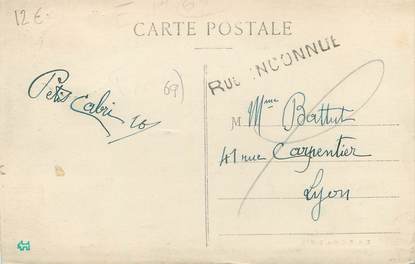 12 €
CARTE POSTALE
RUE INCONNUE
Petit Cabri
69)
M Mme Battut
41 rue Carpentier
Lyon